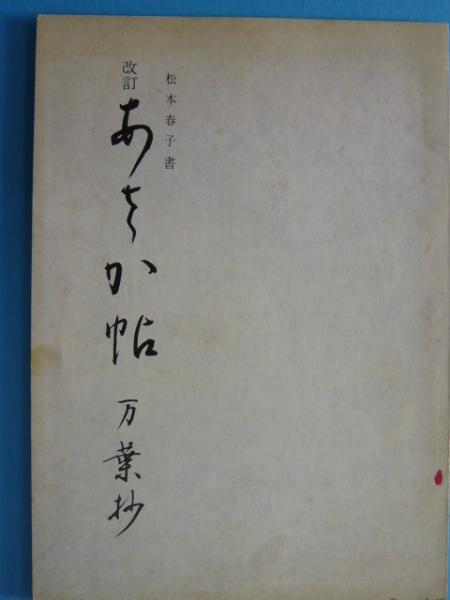 松本春子書
改訂 あさか帖 万葉抄